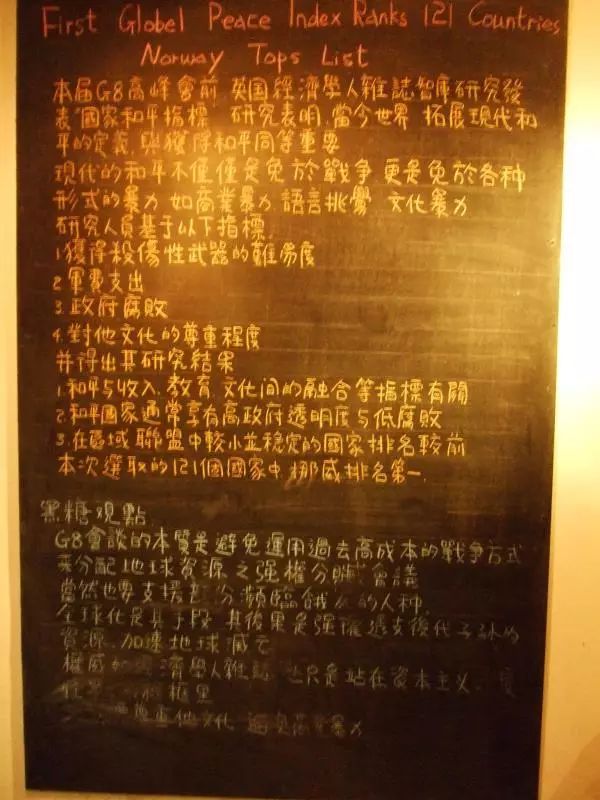 First Globel Peace Index Ranks 121 Countries
Norway Tops List
本届G8高峰會前 英国經濟學人雜誌智庫研究發
表"國家和平指標 研究表明,當今世界 拓展現代和
平的定義,與獲得和平同等重要
現代的和平不僅僅是免於戰争 更是免於各种
形式的暴力 如商業暴力 語言挑釁 文化暴力
研究人員基于以下指標,
1.獲得殺傷性武器的難易度
2.軍費支出
3.政府腐敗
4.對他文化的尊重程度
并得出其研究結果
1.和平与收入.教育.文化间的融合等指標有關
2.和平國家通常享有高政府透明度与低腐敗
3.在區域聯盟中較小並稳定的國家排名較前
本次選取的121個國家中,挪威排名第一.
黑糖观點
G8會談的本質是避免運用過去高成本的戰争方式
來分配地球資源之强權分賍會議
當然也要支援部分瀕臨餓死的人种.
全球化是其手段 其後果是强權透支後代子孙的
資源.加速地球滅亡
權威如 濟學人雜誌 也只是站在資本主义
框里
重他文化 避免商業暴力